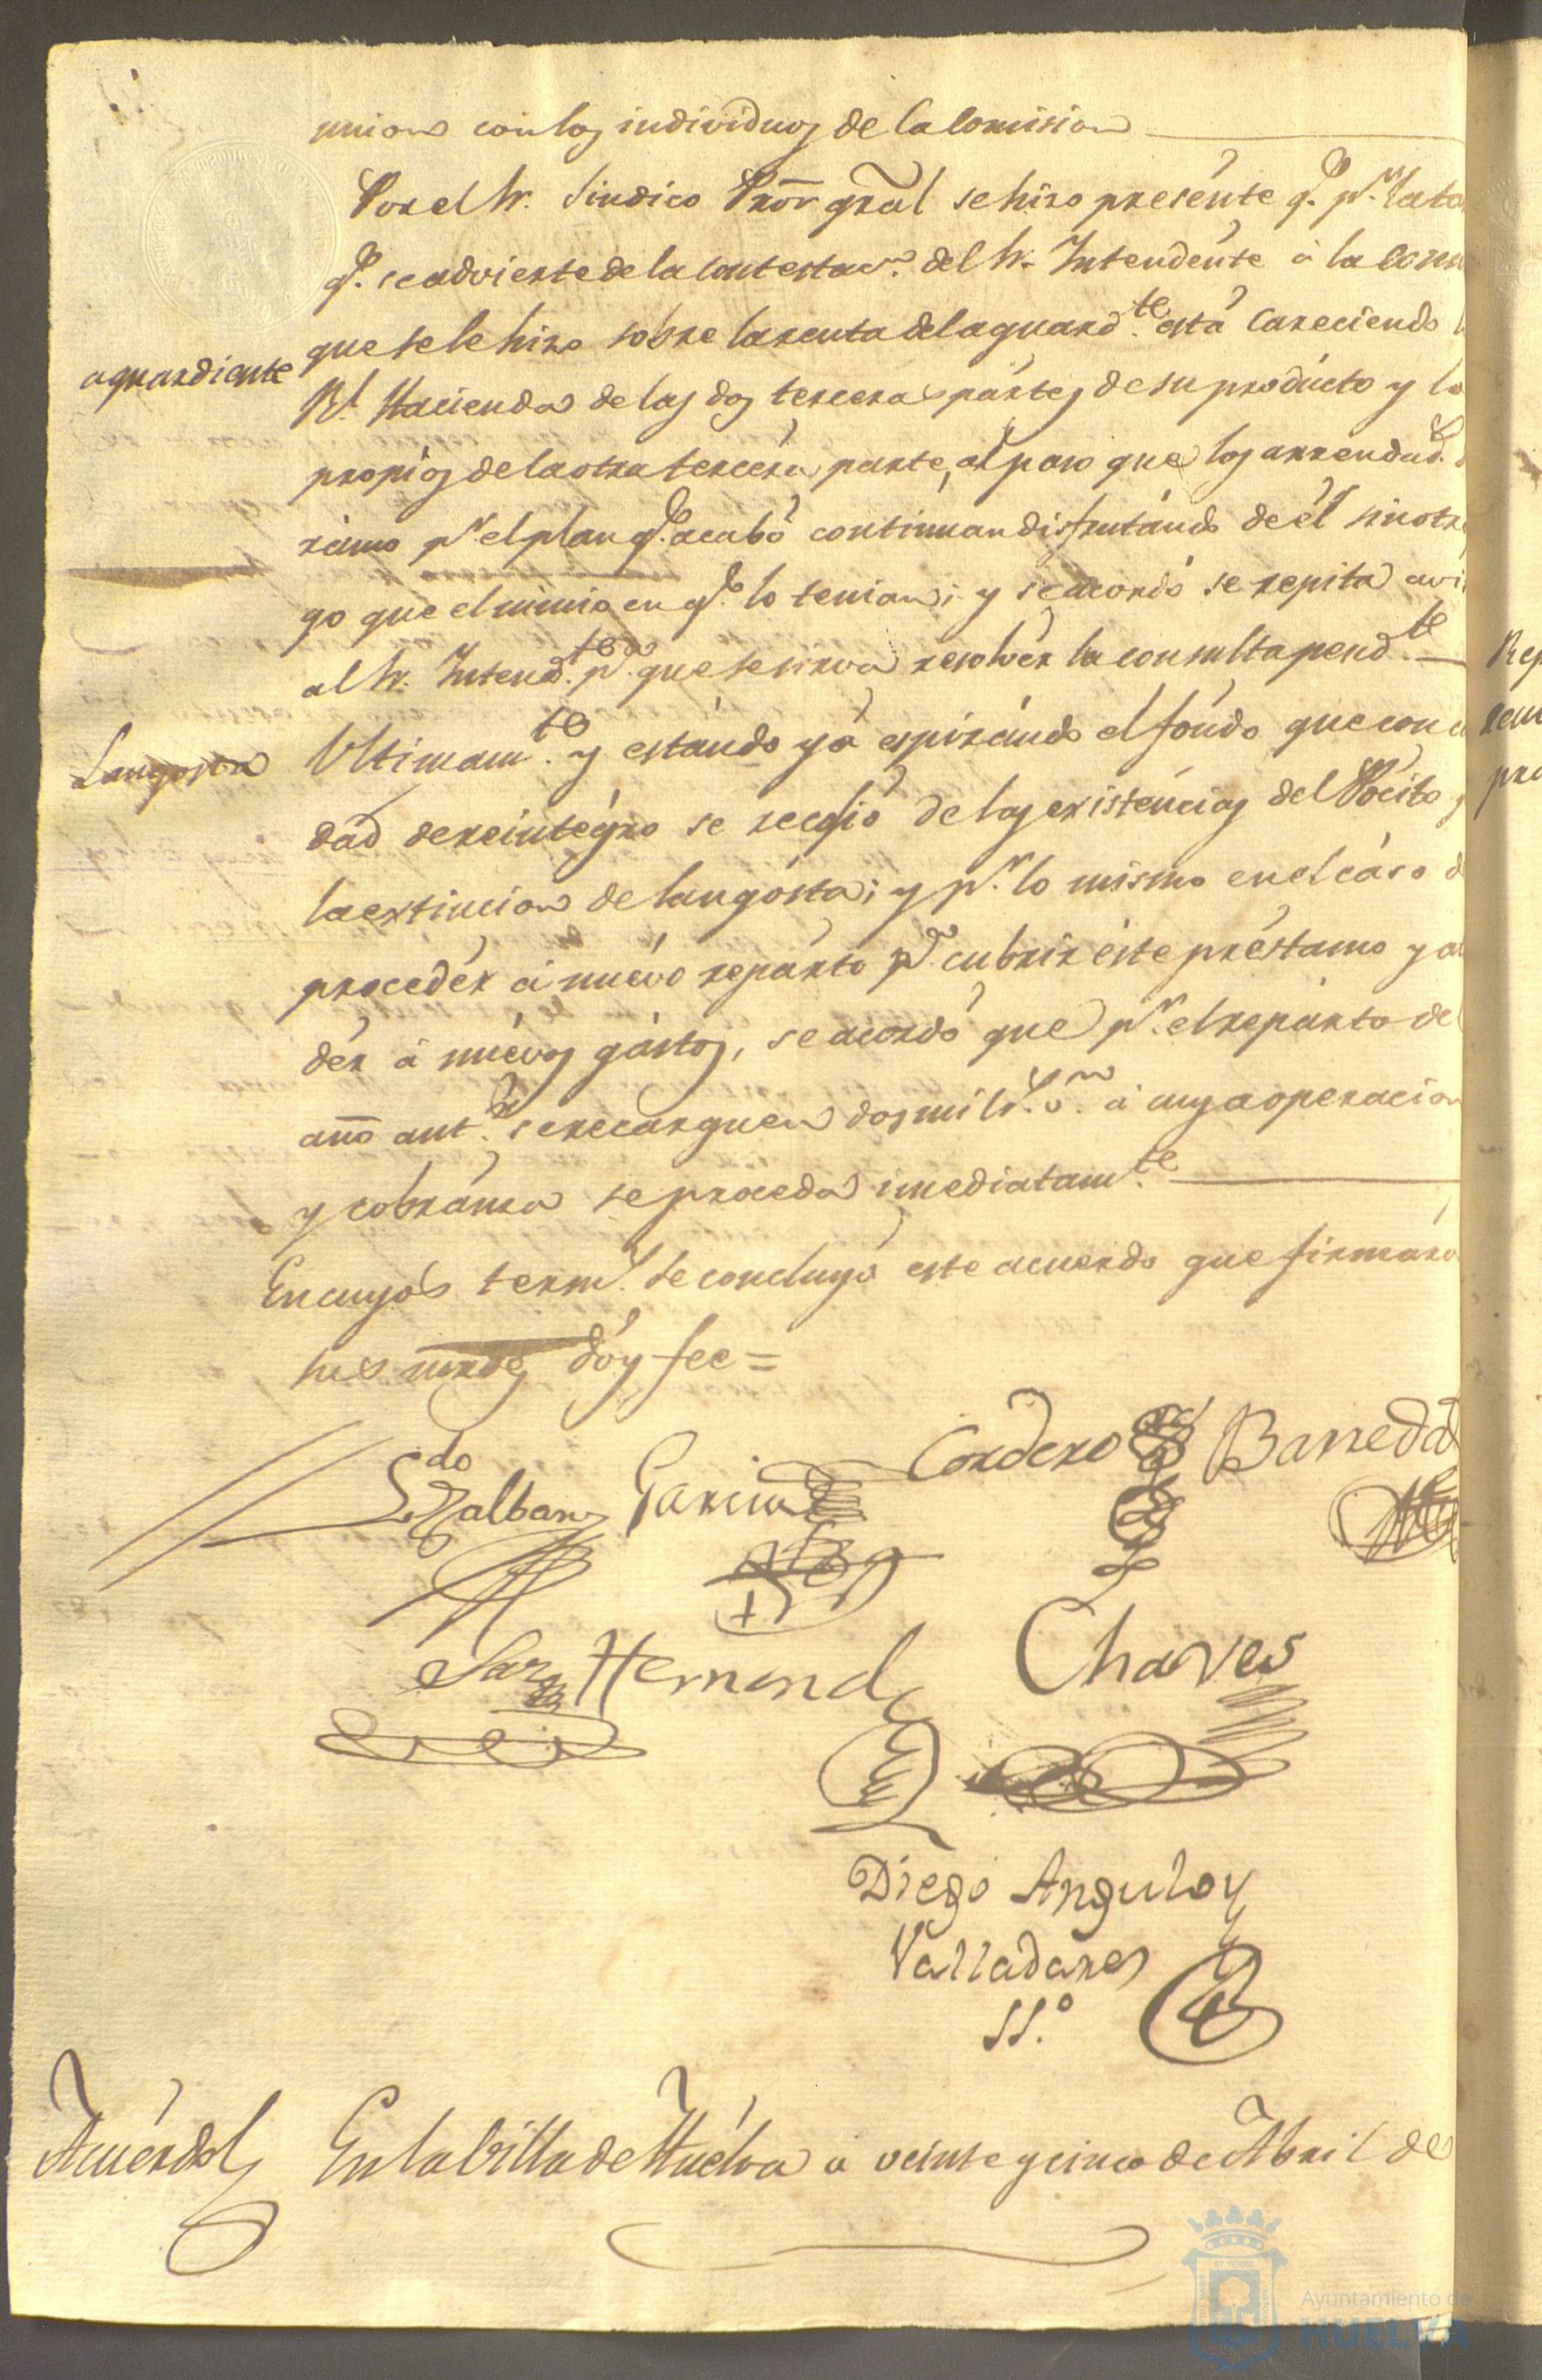 union con los individuos de la Comision
Por el Sr. Sindico Prõr gräl se hizo presente q.e p.r la ta
q.e se advierte de la contestac.n del Sr. Intendente à la
que se le hizo sobre la renta del aguard.te està careciendo
aguardiente
Rl. Hacienda de las dos terceras partes de su producto y lo
propios de la otra tercera parte, al paso que los arrendad.s
ramo p.r el plan q.e acabò continuan disfrutando de èl sin otro
go que el mismo en q.e lo tenian; y se acordò se repita
al Sr. Intend.te p.a que se sirva resolver la consulta pend.te
Langosta
Ultimam.te y estando yà espirando el fondo que con
dad de reintegro se recogiò de las existencias del Pòcito
la extincion de langosta; y p.r lo mismo en el caso d
proceder à nuevo reparto p.a cubrir este préstamo y
dèr à nuevos gastos, se acordò que p.r el reparto del
año ant.r se recarguen dos mil r.s v.n à cuya operacion
y cobranza se proceda imediatam.te
En cuyos term.s se concluyò este acuerdo que firmaro
sus mrdes dòy fee=
L.do
Garcia
Cordero
Barreda
Hernand
Chaves
Diego Angulo y
Valladares
SS.o
Acuerdo
En la Villa de Huelva à veinte y cinco de Abril de
Rep
Ayuntamiento de
HUELVA